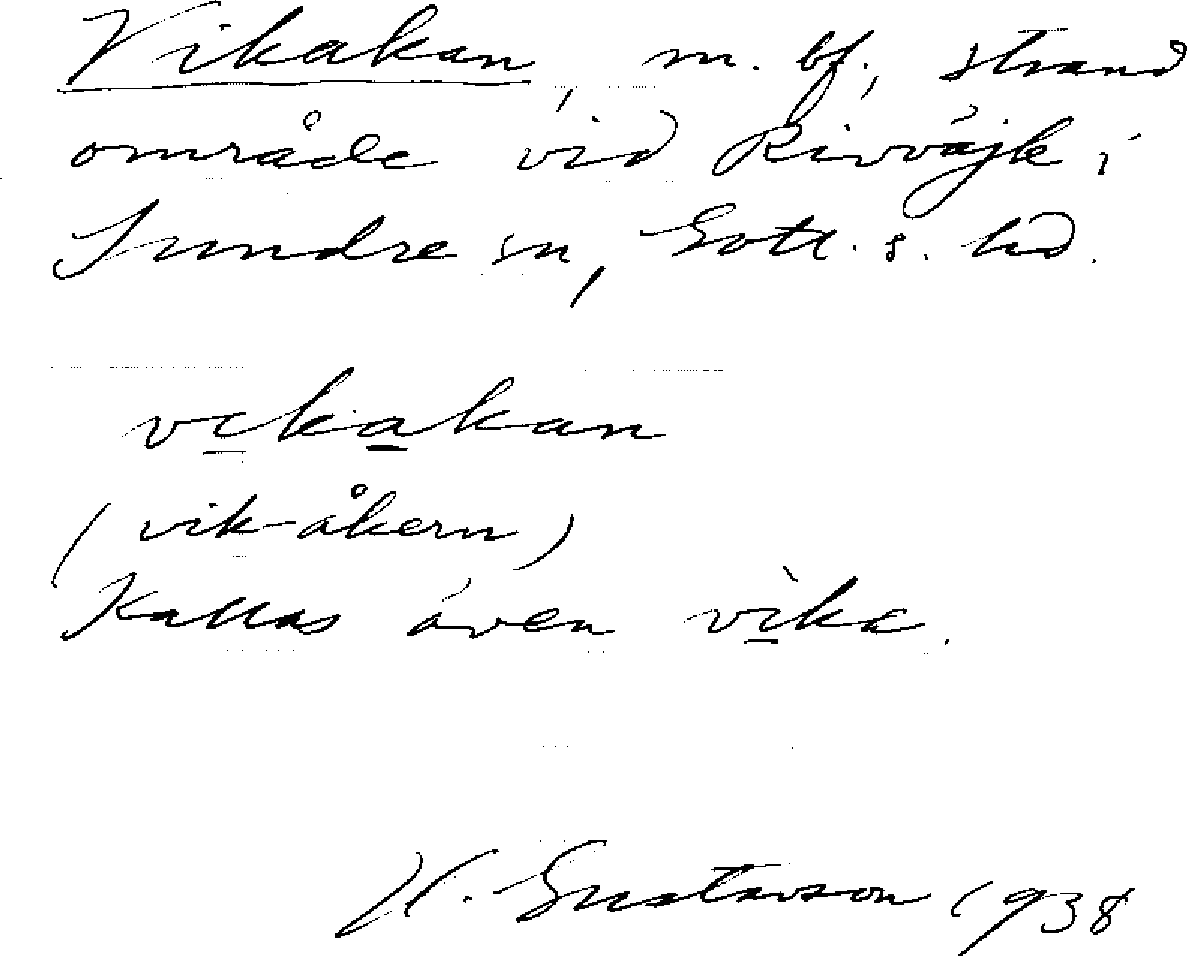 Vikakan, m. bf., strand
område vid Rivvájk i
Sundre sn, Gotl. s. hd.
vikakan
(vik-åkern)
Kallas även vìka.
H. Gustavson 1938